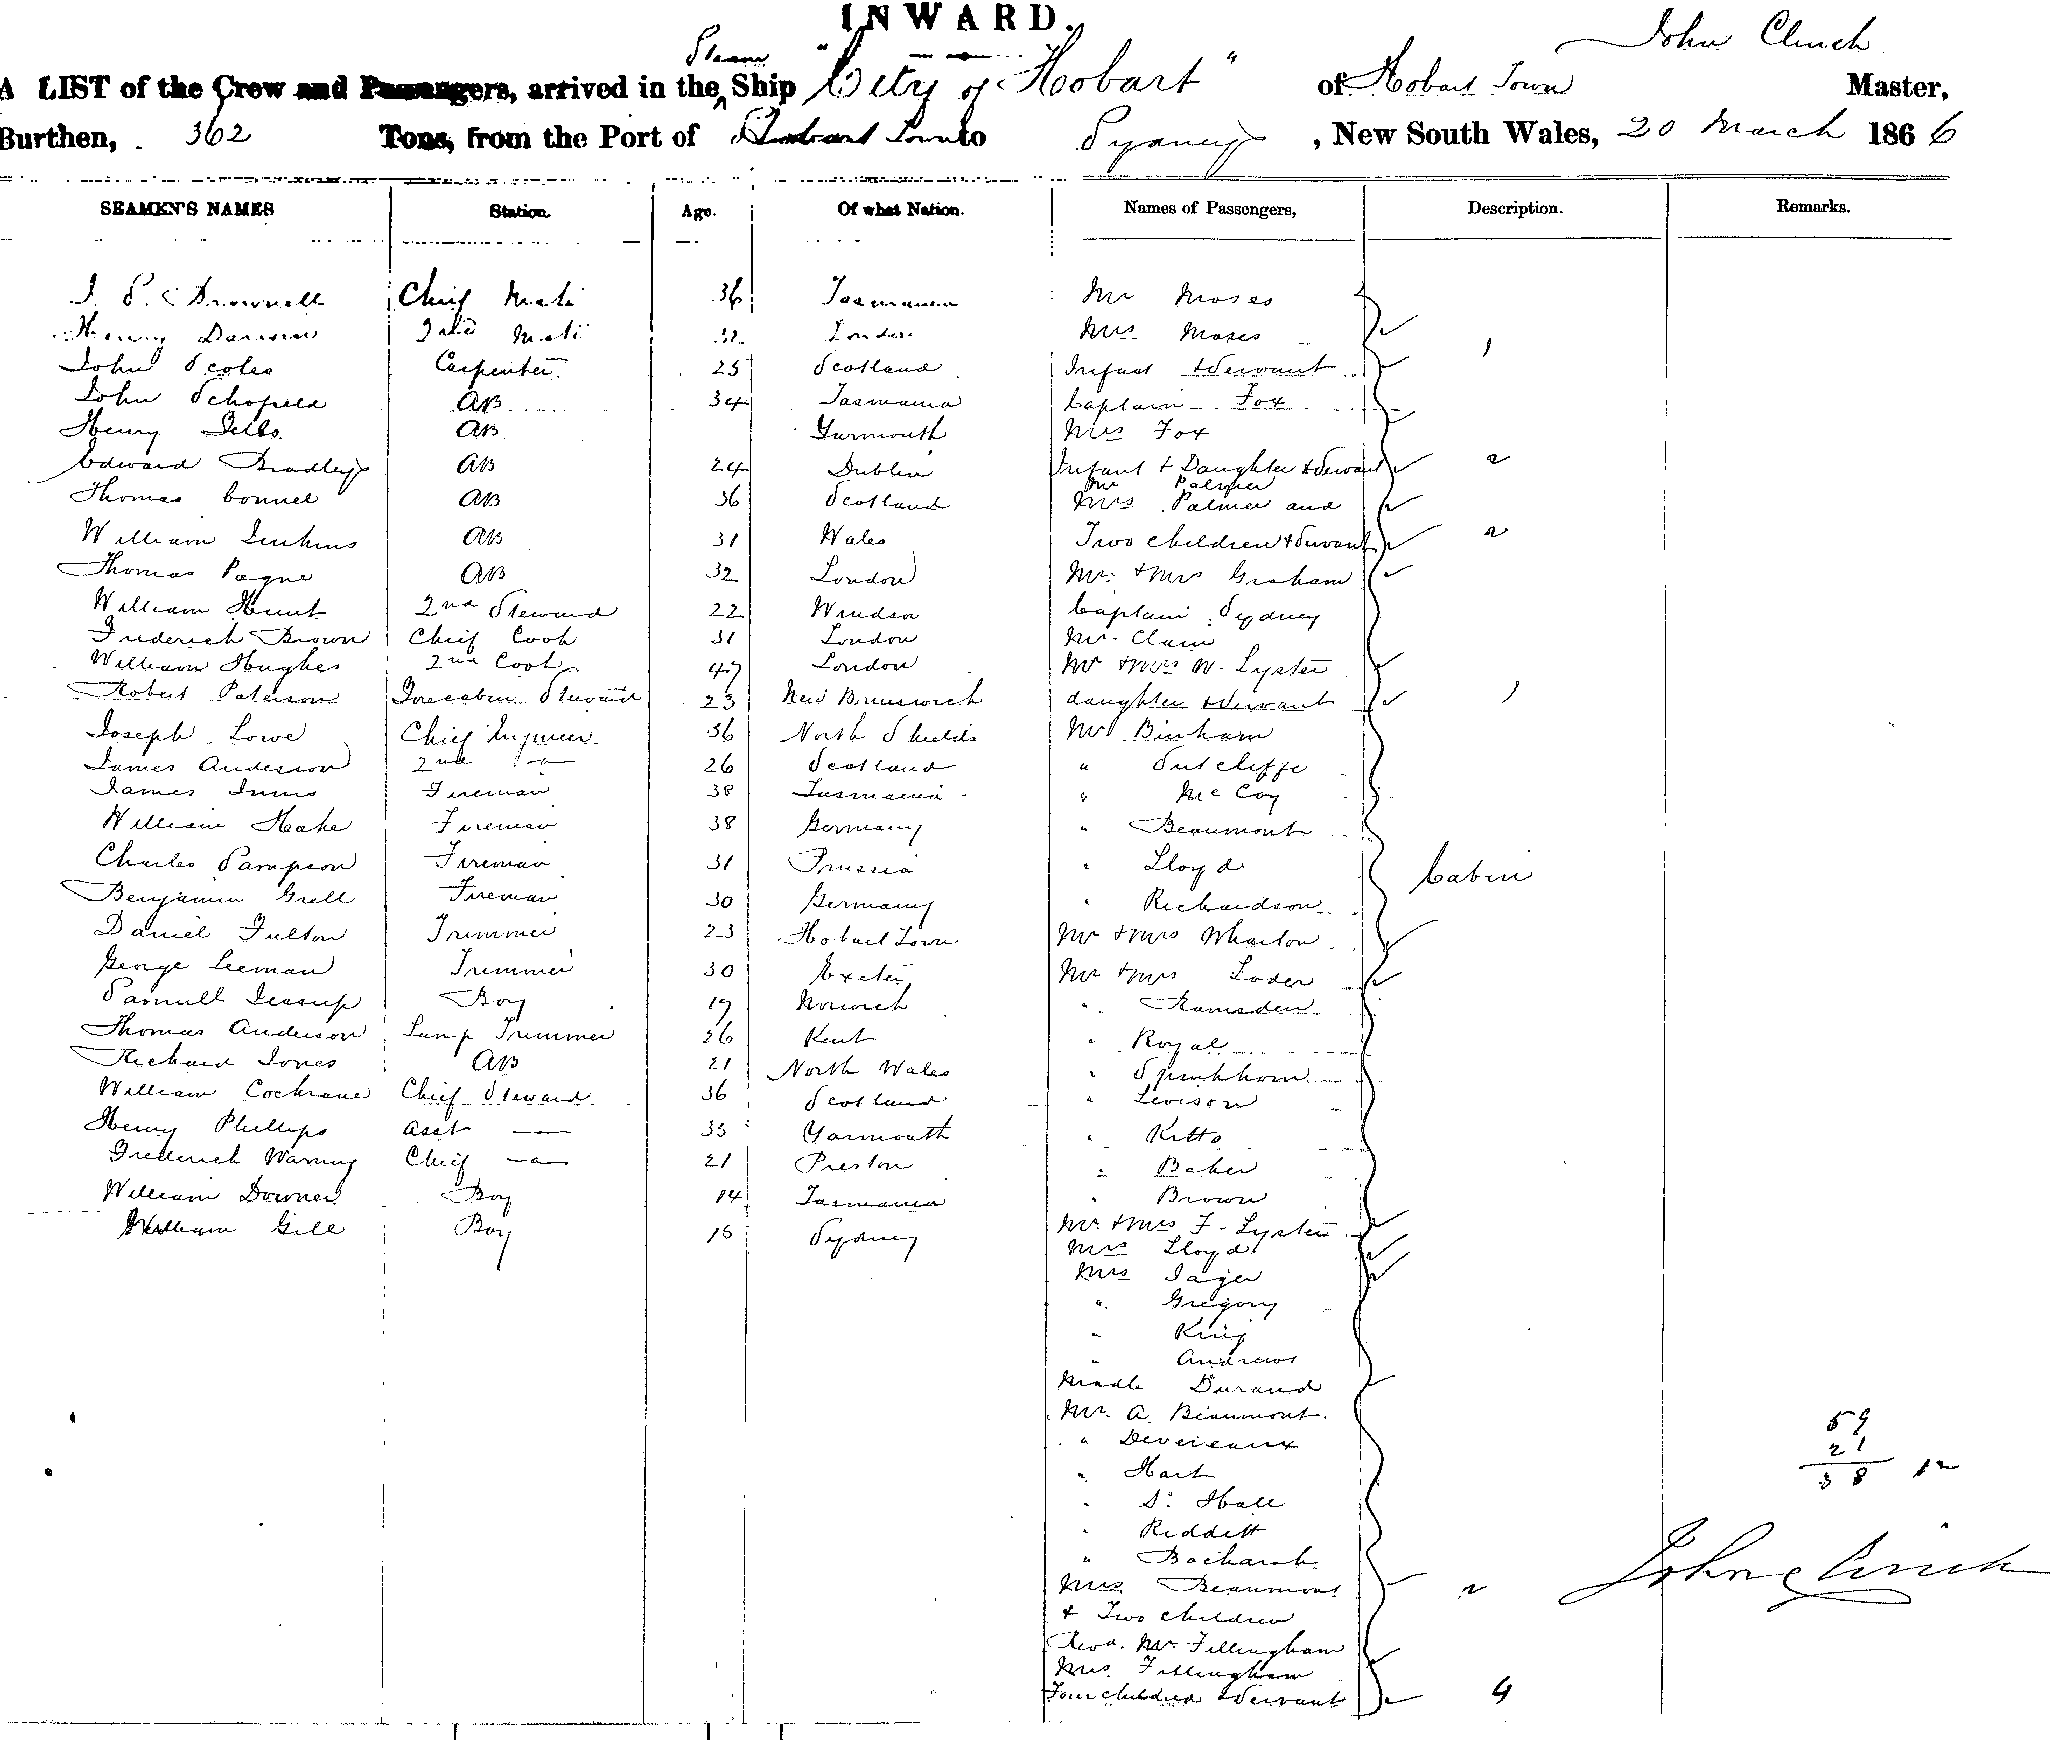 INWARD.
John Clinch
Steam
A LIST of the Crew and Passengers, arrived in the Ship "City of Hobart" of Hobart Town Master,
Burthen, 362 Tons, from the Port of Hobart Town to Sydney, New South Wales, 20 March 1866
SEAMEN'S NAMES Station. Age. Of what Nation. Names of Passengers, Description. Remarks.
J. S. Brownell Chief Mate 36 Tasmania Mr Moses
Henry 2nd Mate 32 London Mrs Moses
John Scoles Carpenter 25 Scotland Infant & Servant 1
John Schofield AB 34 Tasmania Captain Fox
Henry AB Yarmouth Mrs Fox
Edward Bradley AB 24 Dublin Infant & Daughter & Servant 2
Mr Palmer
Thomas Connel AB 36 Scotland Mrs Palmer and
William Jenkins AB 31 Wales Two children & Servant 2
Thomas Payne AB 32 London Mr & Mrs Graham
William Hunt 2nd Steward 22 Windsor Captain Sydney
Frederich Brown Chief Cook 31 London Mr
William Hughes 2nd Cook 47 London Mr & Mrs W. Lyster
Robert Paterson Forecabin Steward 23 New Brunswick daughter & Servant 1
Joseph Lowe Chief Engineer 36 North Shields Mr Binham
James Anderson 2nd " 26 Scotland " Sutcliffe
James Innis Fireman 38 Tasmania " McCoy
William Hake Fireman 38 Germany " Beaumont
Charles Sampson Fireman 31 Prussia " Lloyd Cabin
Benjamin Grell Fireman 30 Germany " Richardson
Daniel Fulton Trimmer 23 Hobart Town Mr & Mrs Wharton
George Leeman Trimmer 30 Exeter Mr & Mrs Loder
Samuell Jessup Boy 19 Norwich " Ramsden
Thomas Anderson Lamp Trimmer 26 Kent " Royal
Richard Jones AB 21 North Wales " Spinkhorn
William Cochrane Chief Steward 36 Scotland " Levison
Henry Phillips Asst " 33 Yarmouth " Kitts
Frederich Waring Chief " 21 Preston " Baker
William Downer Boy 14 Tasmania " Brown
William Gill Boy 15 Sydney Mr & Mrs F. Lyster
Mrs Lloyd
Mrs Jager
" Gregory
" King
" Andrews
Madle Durand
Mr. A. Beaumont
" Devereaux
" Hart
" S. Hall
" Riddett
"
Mrs Beaumont 2
& Two children
Revd. Mr. Fillingham
Mrs. Fillingham
Four children & Servant 4
59
21
38 12
John Clinch